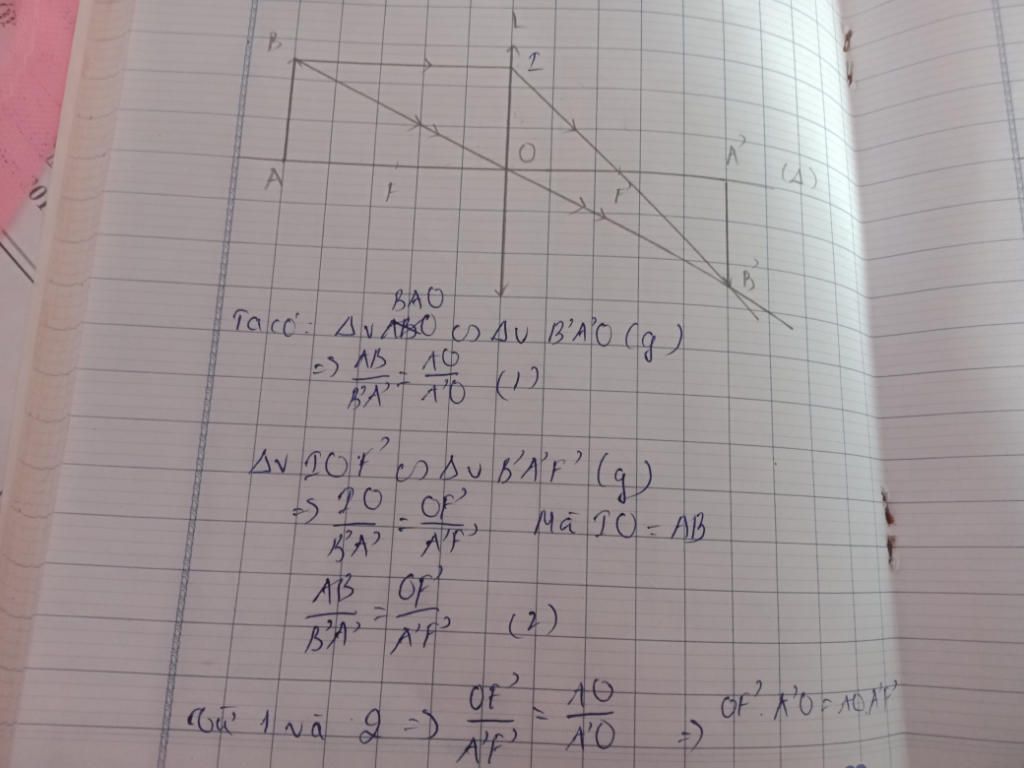 L
B
I
O
A'
(Δ)
A
F
F'
B'
BAO
Ta có: Δv ABO ∽ Δv B'A'O (g)
=> AB/B'A' = AO/A'O (1)
Δv IOF' ∽ Δv B'A'F' (g)
=> IO/B'A' = OF'/A'F' Mà IO = AB
AB/B'A' = OF'/A'F' (2)
Từ 1 và 2 => OF'/A'F' = AO/A'O => OF'. A'O = AO.A'F'